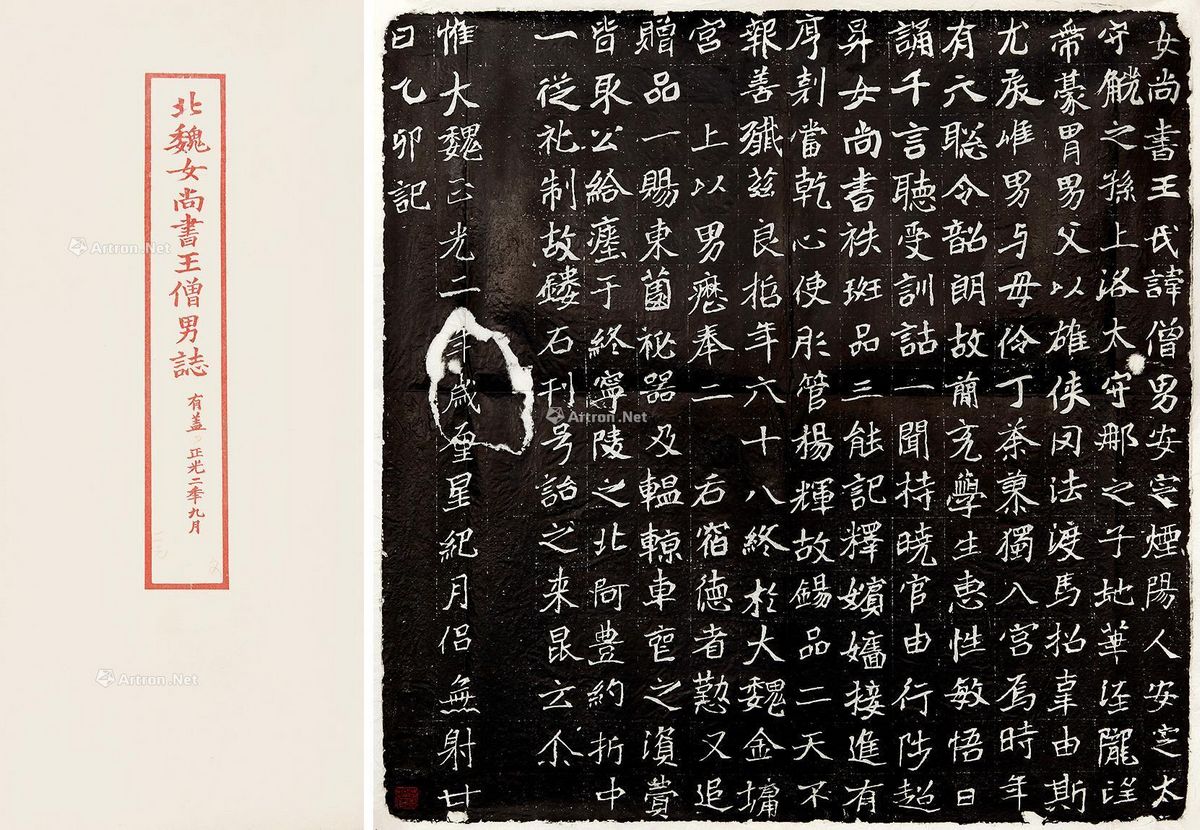 北魏女尚書王僧男誌
有盖 正光二年九月
女尚書王氏諱僧男安定煙陽人安定太
守觥之孫上洛太守那之子地華涇隴望
帶豪胄男父以雄俠罔法渡馬招辜由斯
尤戾唯男与母伶丁荼蓼獨入宮焉時年
有六聡令韶朗故簡充學生惠性敏悟日
誦千言聽受訓詁一聞持曉官由行陟超
昇女尚書秩班品三能記釋嬪嬙接進有
序剋當乾心使彤管楊輝故錫品二天不
報善殲茲良年六十八終於大魏金墉
宮 上以男歷奉二 后宿德者懃又追
贈品一賜東薗祕器及轀輬車之
皆取公給瘞于終寧陵之北阿豊約折中
一從礼制故鏤石刊号詒之来昆云尒
惟大魏正光二年歲星紀月侣無射廿
日乙卯記
Artron.Net
Artron.Net
Artron.Net